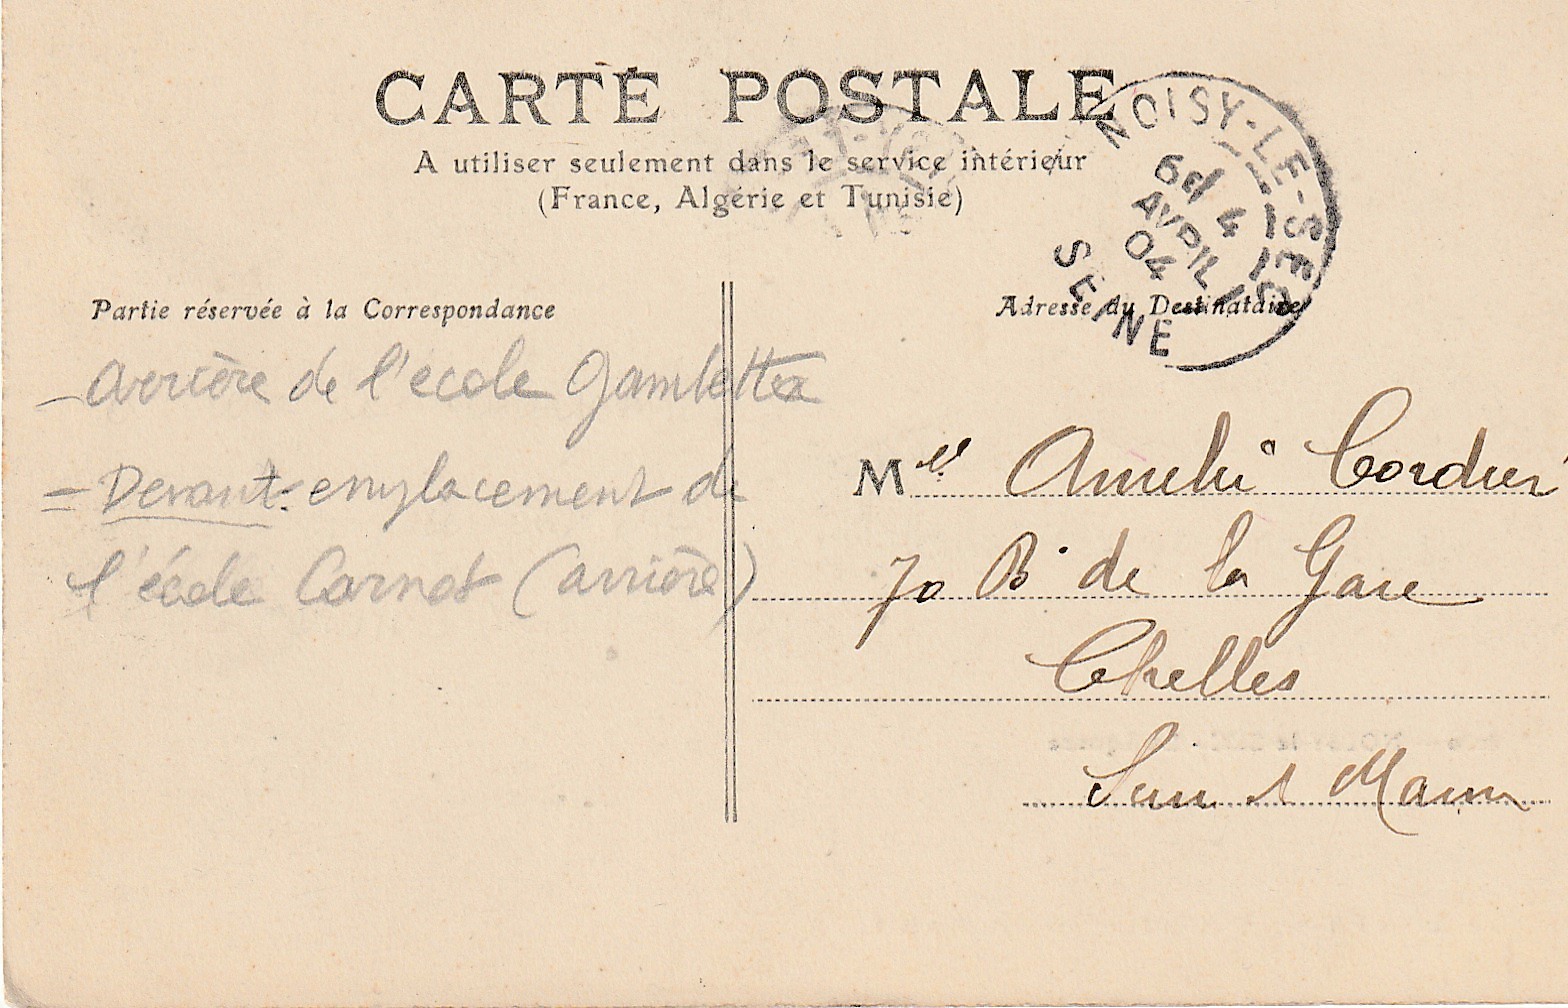 CARTE POSTALE
A utiliser seulement dans le service intérieur
(France, Algérie et Tunisie)
NOISY-LE-SEC
6e 4
AVRIL
04
SEINE
Partie réservée à la Correspondance
Adresse du Destinataire
- Arrière de l'ecole Gambetta
= Devant: emplacement de
l'école Carnot (arrière)
Mlle Amelie Cordier
70 Bd de la Gare
Chelles
Seine et Marne